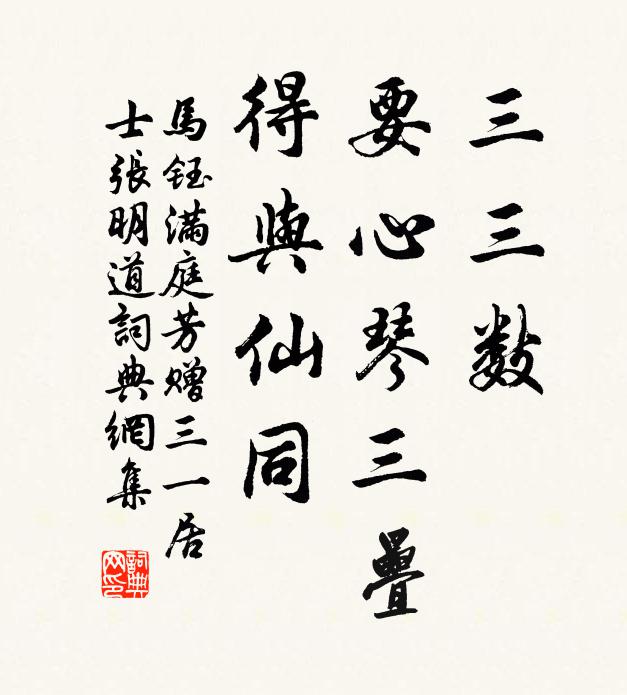 三三數
要心琴三疊
得與仙同
馬鈺滿庭芳贈三一居
士張明道詞典網集
詞典
网印